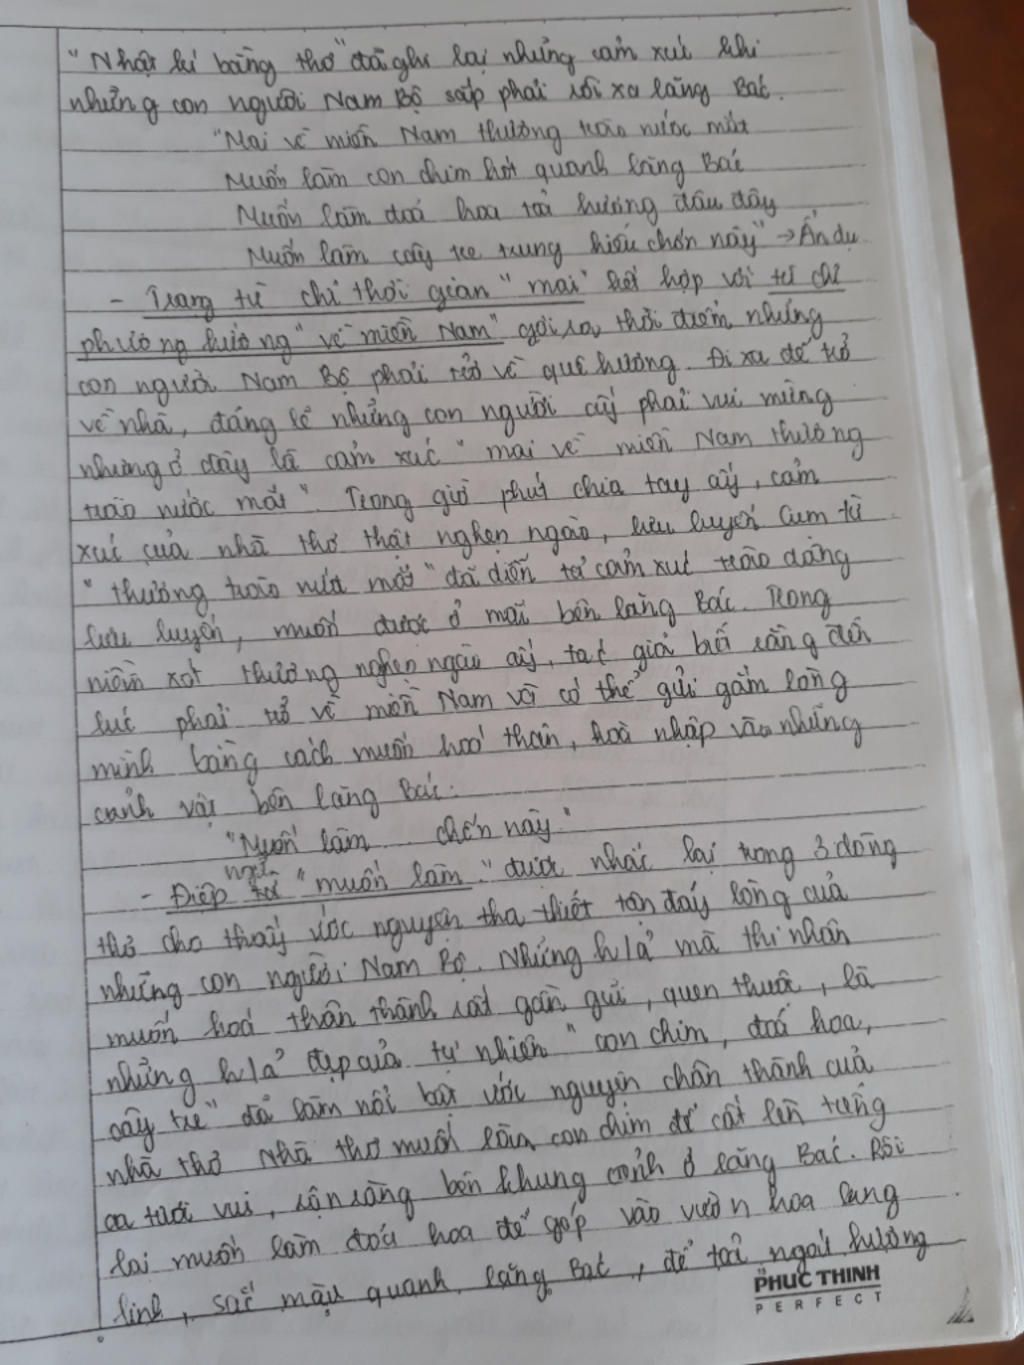 "Nhật kí bằng thơ" đã ghi lại những cảm xúc khi
những con người Nam Bộ sắp phải rời xa lăng Bác.
"Mai về miền Nam thương trào nước mắt
Muốn làm con chim hót quanh lăng Bác
Muốn làm đoá hoa toả hương đâu đây
Muốn làm cây tre trung hiếu chốn này" → Ẩn dụ
- Trạng từ chỉ thời gian "mai" kết hợp với từ chỉ
phương hướng "về miền Nam" gợi ra thời điểm những
con người Nam Bộ phải trở về quê hương. Đi xa để trở
về nhà, đáng lẽ những con người ấy phải vui mừng
nhưng ở đây là cảm xúc "mai về miền Nam thương
trào nước mắt". Trong giờ phút chia tay ấy, cảm
xúc của nhà thơ thật nghẹn ngào, lưu luyến. Cụm từ
"thương trào nước mắt" đã diễn tả cảm xúc trào dâng
lưu luyến, muốn được ở mãi bên lăng Bác. Trong
niềm xót thương nghẹn ngào ấy, tác giả biết rằng đến
lúc phải trở về miền Nam và có thể gửi gắm lòng
mình bằng cách muốn hoá thân, hoà nhập vào những
cảnh vật bên lăng Bác.
"Muốn làm... chốn này"
- Điệp ngữ "muốn làm" được nhắc lại trong 3 dòng
thơ cho thấy ước nguyện tha thiết tận đáy lòng của
những con người Nam Bộ. Những h/ả mà thi nhân
muốn hoá thân thành rất gần gũi, quen thuộc, là
những h/ả đẹp của tự nhiên "con chim, đoá hoa,
cây tre" đã làm nổi bật ước nguyện chân thành của
nhà thơ. Nhà thơ muốn làm con chim để cất lên tiếng
ca tươi vui, rộn ràng bên khung cảnh ở lăng Bác. Rồi
lại muốn làm đoá hoa để góp vào vườn hoa lung
linh, sắc màu quanh lăng Bác, để toả ngát hương
PHUC THINH
PERFECT